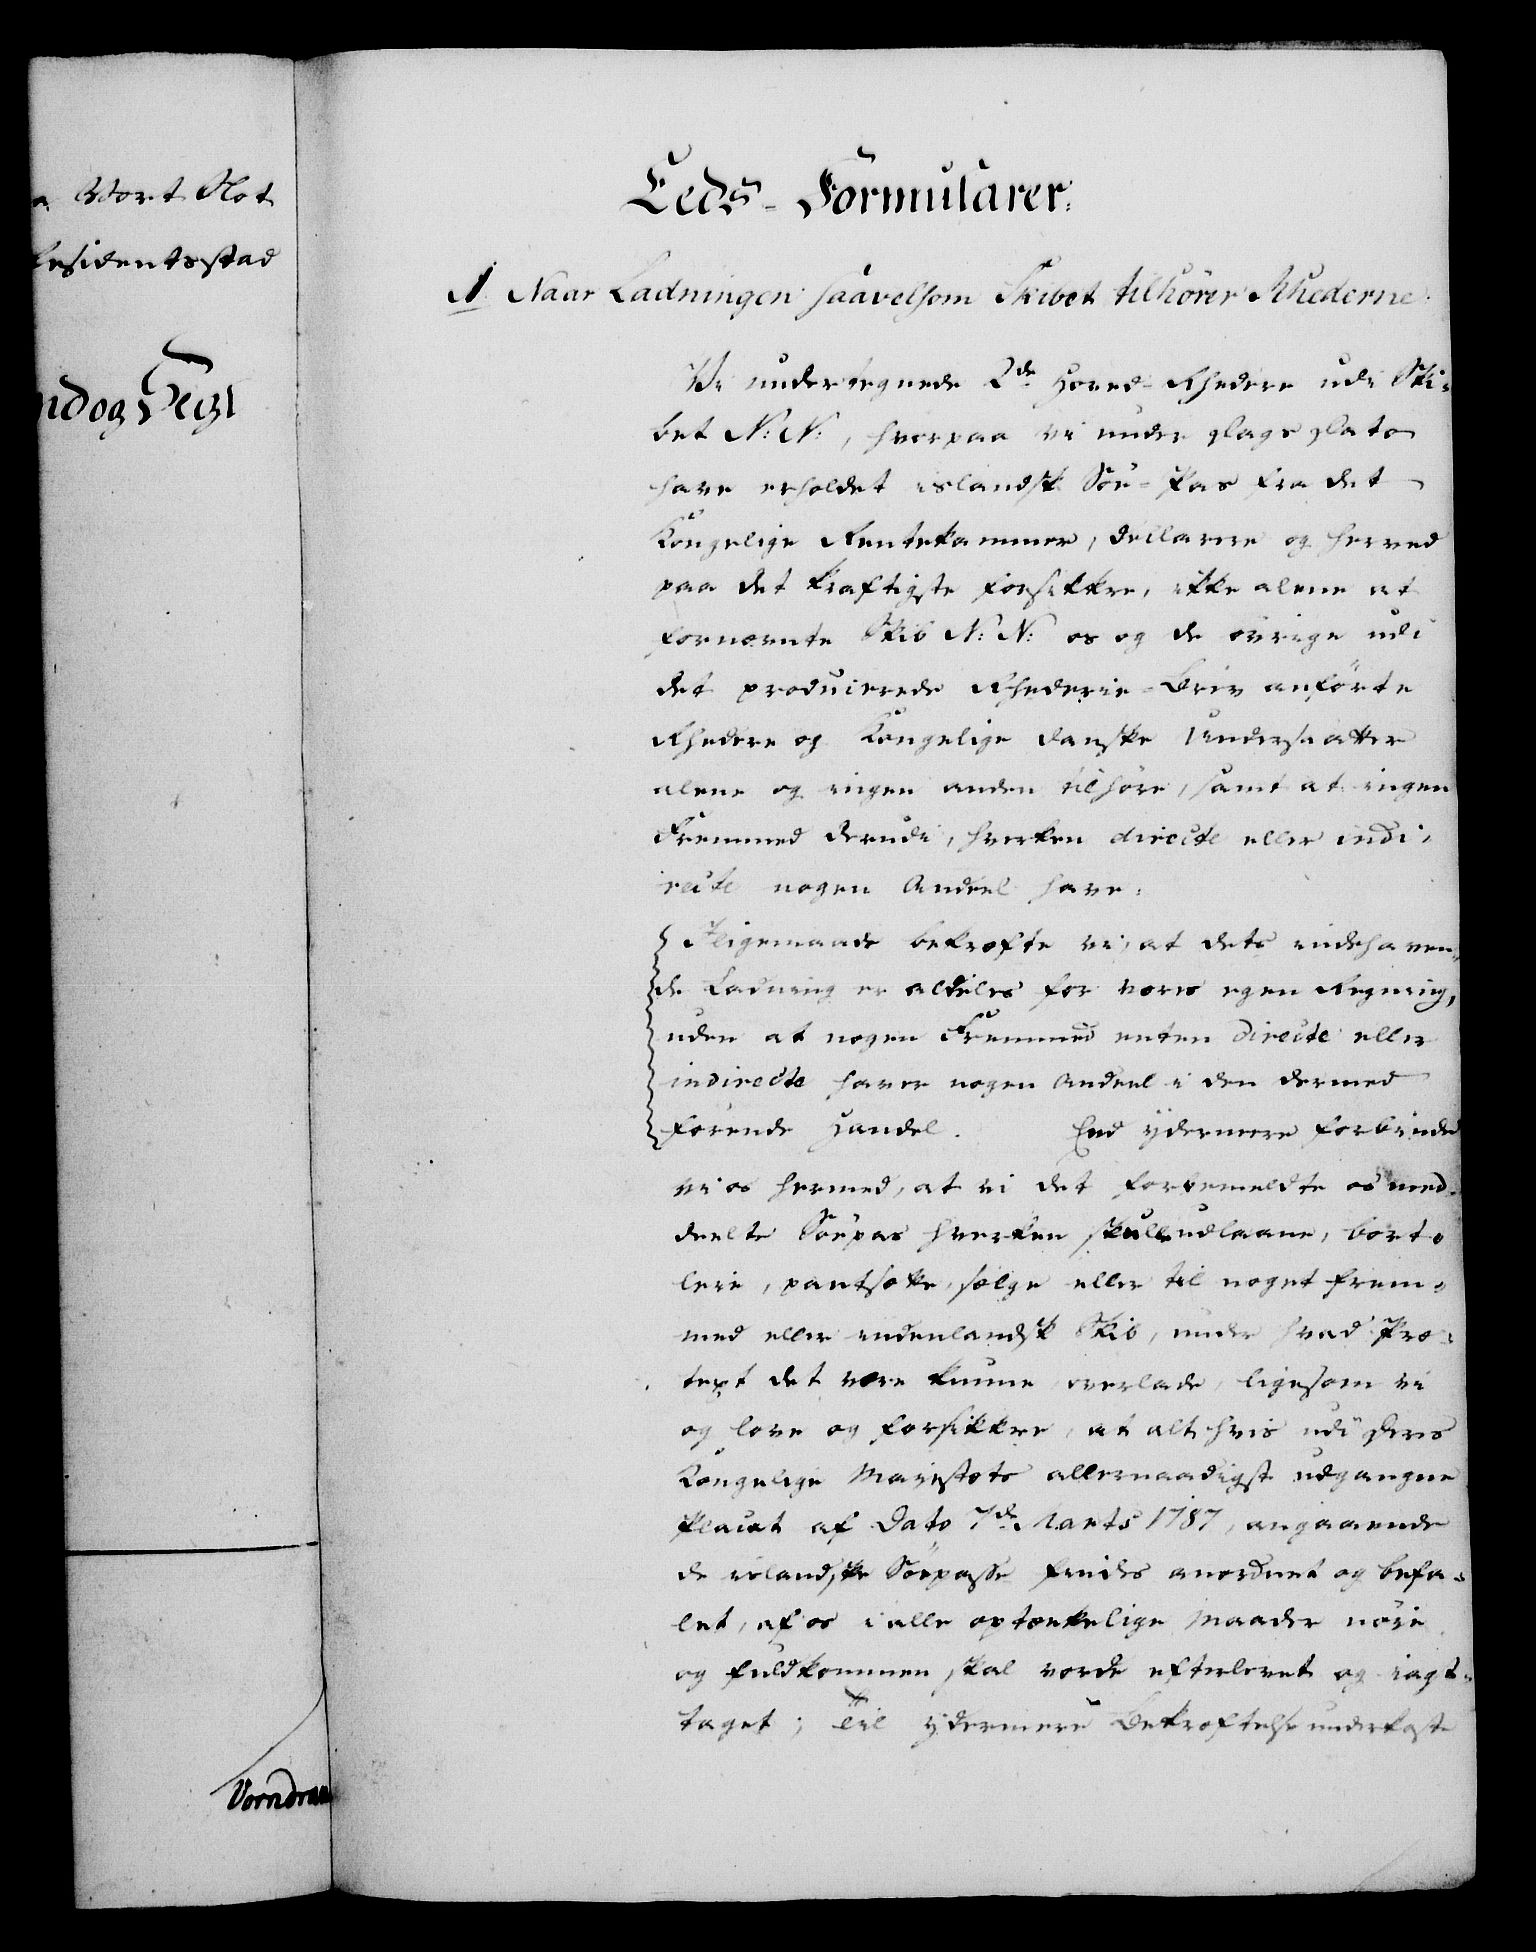 Vort Slot
Residentsstad
nd og Seigl
Vorndran
Eeds-Formularer:
A. Naar Ladningen saavelsom Skibet tilhører Rhederne.
Vi undertegnede 2de Hoved-Rhedere udi Ski-
bet N: N:, hvorpaa vi under Dags Dato
have erholdet islandsk Søe-Pas fra det
Kongelige Rentekammer, declarere og herved
paa det kraftigste forsikkre, ikke alene at
fornævnte Skib N: N: os og de øvrige udi
det producerede Rhederie-Brev anførte
Rhedere og Kongelige danske Undersaatter
alene og ingen anden tilhøre, samt at ingen
Fremmed derudi, hverken directe eller indi-
recte nogen Andeel have.
Ligemaade bekræfte vi, at dets indehaven-
de Ladning er aldeles for vores egen Regning,
uden at nogen Fremmed enten directe eller
indirecte haver nogen Andeel i den dermed
førende Handel. End ydermere forbinde
vi os hermed, at vi det forbemeldte os med-
deelte Søepas hverken skulle udlaane, bort-
leie, pantsætte, sælge eller til noget frem-
med eller indenlandsk Skib, under hvad Præ-
text det være kunne overlade, ligesom vi
og love og forsikkre, at alt hvis udi Deres
Kongelige Majestæts allernaadigst udgangne
Placat af Dato 7de Marts 1787, angaaende
de islandske Søepasse findes anordnet og befa-
let, af os i alle optænkelige Maader nøie
og fuldkommen skal vorde efterlevet og iagt-
taget; Til ydermere Bekræftelse underkaste